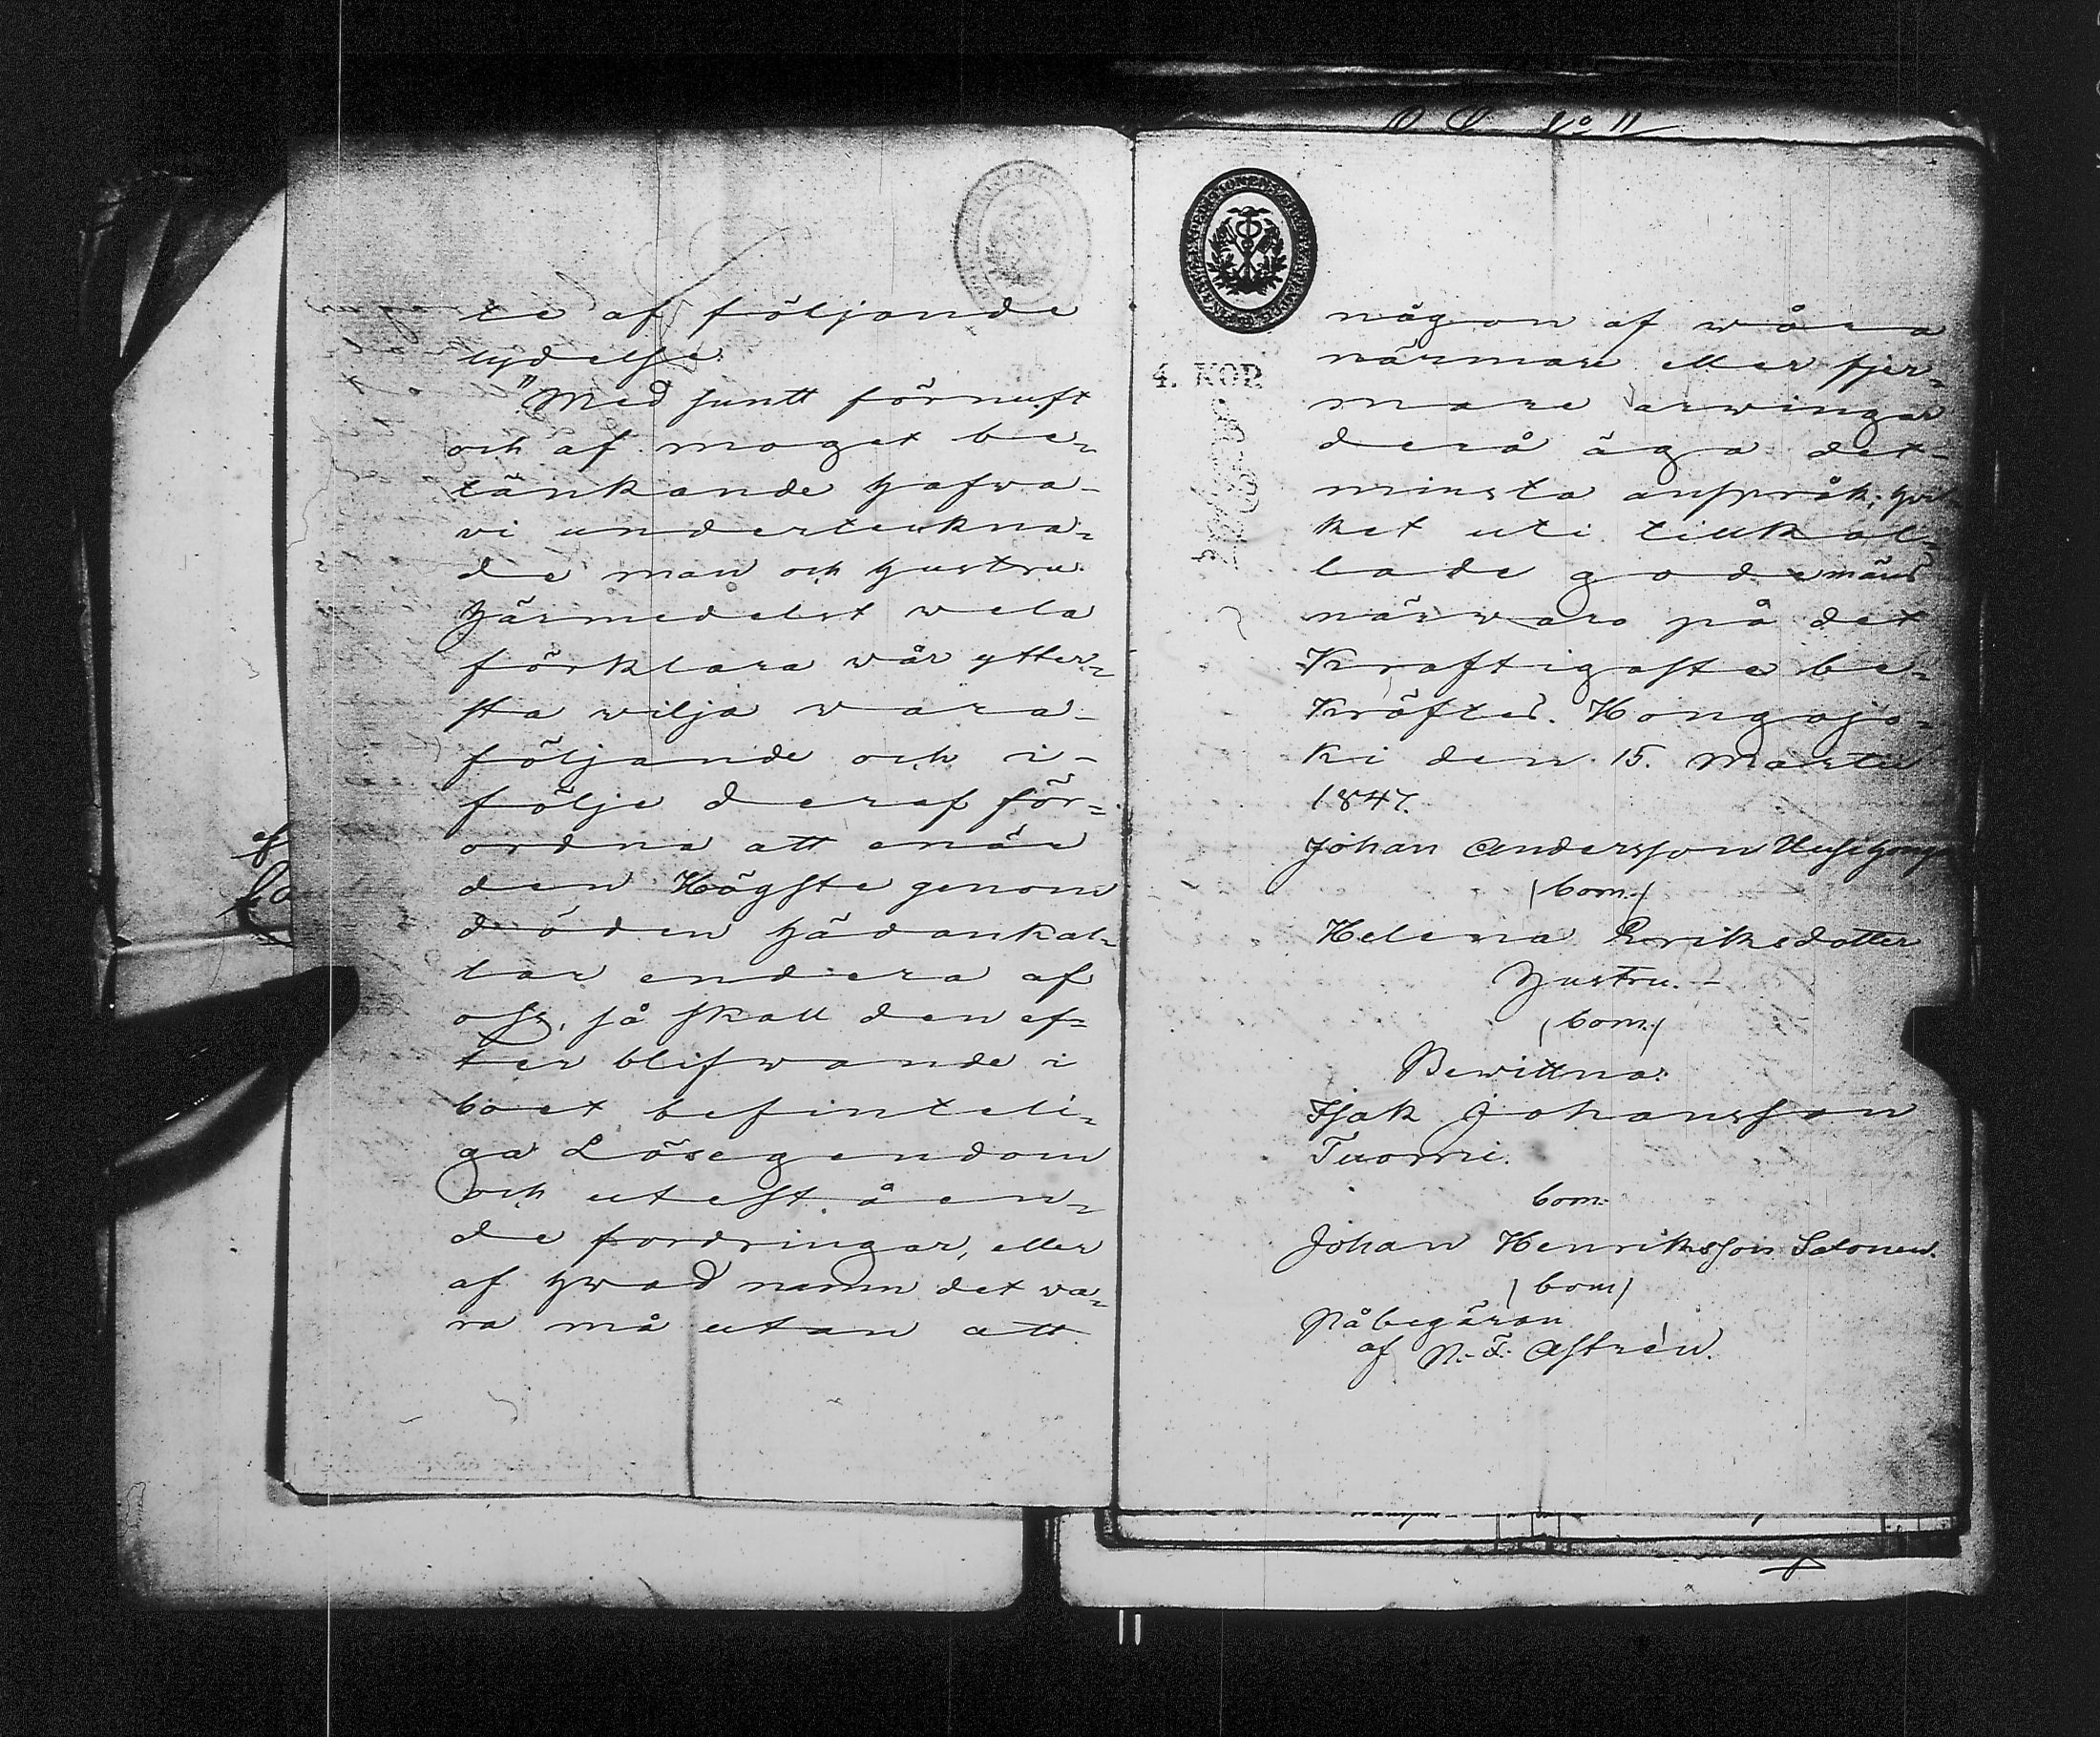 te af följande
lydelse:
"Med suntt förnuft
och af moget be-
tänkande hafva
vi undertekna-
de man och hustru
härmedelst wela
förklara wår ytter-
sta wilja vara
följande och i-
följe deraf för-
ordna att enär
den Högste genom
döden hädankal-
lar endera af
oss, så skall den ef-
ter blifwande i
boet befinteli-
ga Lösegendom
och utestående
de fordringar, eller
af hwad namn det va-
ra må utan att
4. KOP.
någon af wåra
närmare eller fjer-
mare arwingar
derå äga det
minsta anspråk; hvil-
ket uti tillkal-
lade godemäns
närwaro på det
Kraftigaste be-
kräftes. Hongojo-
ki den 15. Martii
1847.
Johan Andersson
(bom.)
Helena Eriksdotter
hustru.
(bom.)
Bewittna:
Isak Johansson
Tuomi.
bom.
Johan Henriksson Salonen.
(bom)
På begäran
af N. F. Astrén.